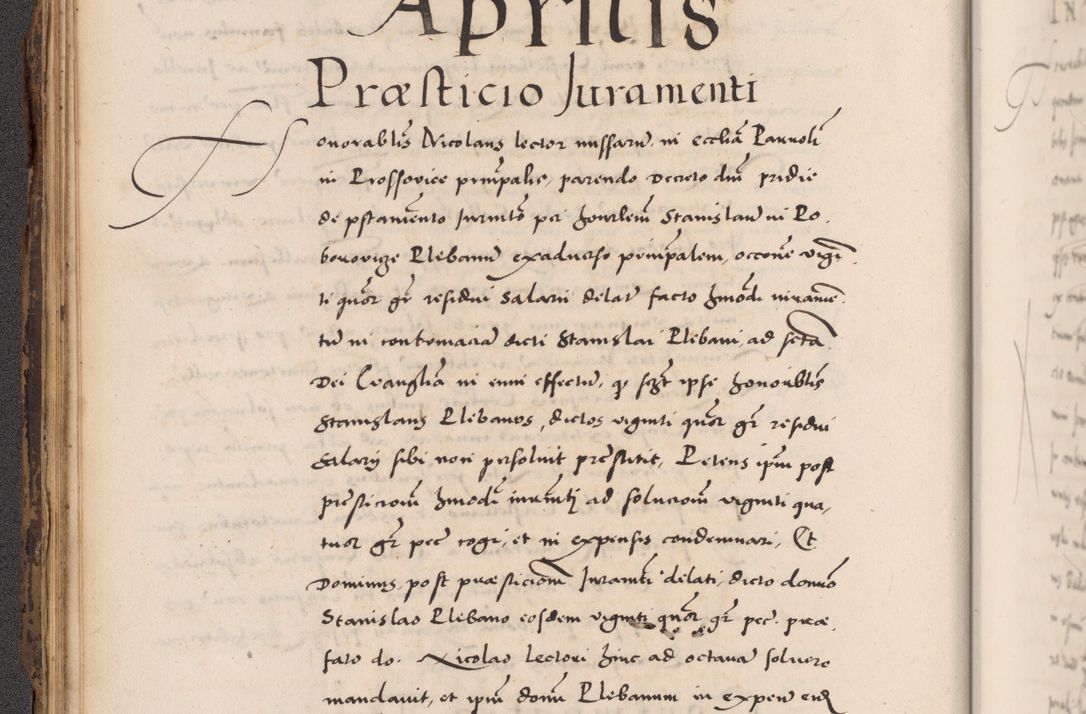 Aprilis
Præsticio Juramenti
Honorablis Nicolaus lector missarum in ecclia
in Prossovice prinpalis, parendo decreto dni pridie
Juramto per honrlem Stanislaum in
Plebanum exadverso prinpalem, occone vigi
ti quor gr residui salarii delato facto hmodi iuramen
tum in contumaciam dicti Stanislai Plebani, ad scta
Dei Evanglia in eum effectum, q ipse honorablis
Stanislaus Plebanus, dictos viginti quor gr residui
salarij sibi non persolvit prestitit, Petens ipm post
presticionem hmodi iuramti ad solucionem viginti qua
tuor gr pec cogi, et in expensis condemnari, Et
Dominus post præsticionem Juramti delati, dicto domno
Stanislao Plebano eosdem viginti quor gr pec. præ
fato do. Nicolao lectori hinc ad octavam solvere
mandavit, et ipm domn Plebanum in expen